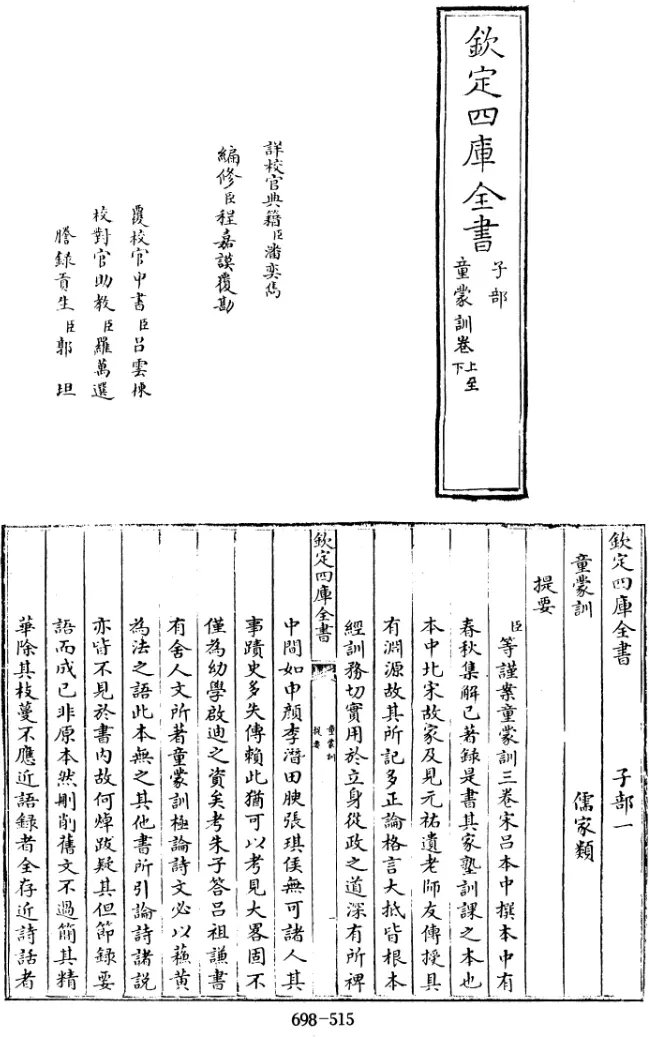 欽定四庫全書
子部
童蒙訓卷上至下
詳校官典籍臣潘奕雋
編修臣程嘉謨覆勘
覆校官中書臣呂雲棟
校對官助教臣羅萬選
謄錄貢生臣郭坦
欽定四庫全書 子部一
童蒙訓 儒家類
提要
臣等謹案童蒙訓三卷宋呂本中撰本中有
春秋集解已著錄是書其家塾訓課之本也
本中北宋故家及見元祐遺老師友傳授具
有淵源故其所記多正論格言大抵皆根本
經訓務切實用於立身從政之道深有所裨
欽定四庫全書
童蒙訓
提要
中間如申顏李潛田腴張琪侯無可諸人其
事蹟史多失傳賴此猶可以考見大畧固不
僅為幼學啟迪之資矣考朱子答呂祖謙書
有舍人文所著童蒙訓極論詩文必以蘇黃
為法之語此本無之其他書所引論詩諸説
亦皆不見於書內故何焯跋疑其但節錄要
語而成已非原本然刪削舊文不過簡其精
華除其枝蔓不應近語錄者全存近詩話者
698-515